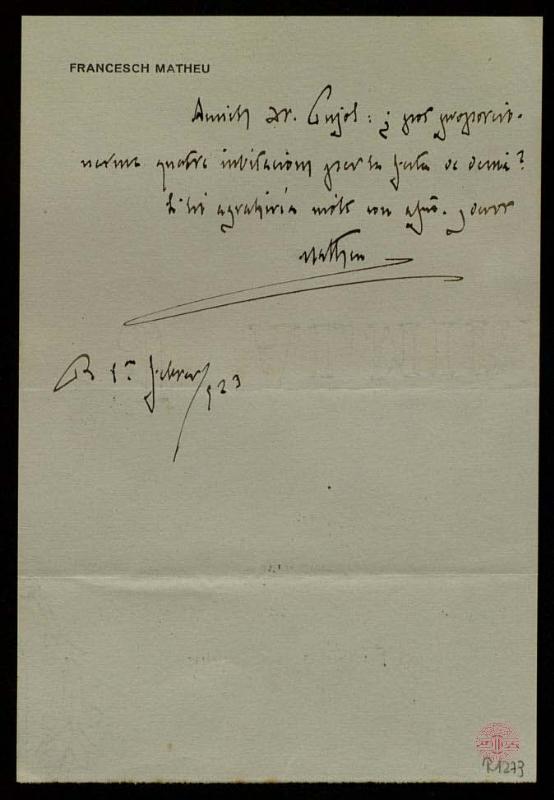 FRANCESCH MATHEU
Amich Dr. Pujol: ¿pot proporcio-
narme quatre invitacions per la festa de demá?
Li hi agrahiría molt son affm. y servr
Matheu
B 1er febrer/923
R1273